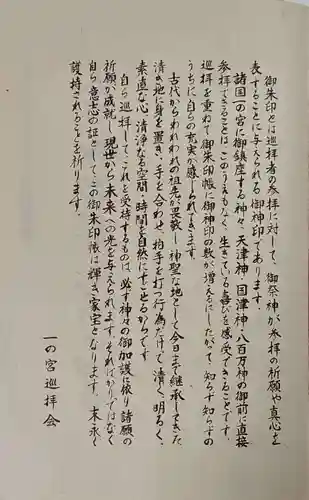 御朱印とは巡拝者の参拝に対して、御祭神が参拝の祈願や真心を
表することに与えられる御神印であります。
諸国一の宮に御鎮座する神々、天津神、国津神、八百万神の御前に直接
参拝できることはこのうえもなく、生きている喜びを感受できることです。
巡拝を重ねて御朱印帳に御神印の数が増えるにしたがって、知らず知らずの
うちに自らの充実が感じられてきます。
古代からわれわれの祖先が畏敬し神聖な地として今日まで継承してきた
清き地に身を置き、手を合わせ、拍手を打つ行為だけで、清く、明るく、
素直な心、清浄なる空間・時間を自然にすごせるからです
自ら巡拝して、これを受持するものは、必ず神々の御加護に依り諸願の
祈願が成就し、現世から未来への光を与えられます。そればかりではなく
自ら意志の証としてこの御朱印帳は輝き家宝となります。末永く
護持されることを祈ります。
一の宮巡拝会